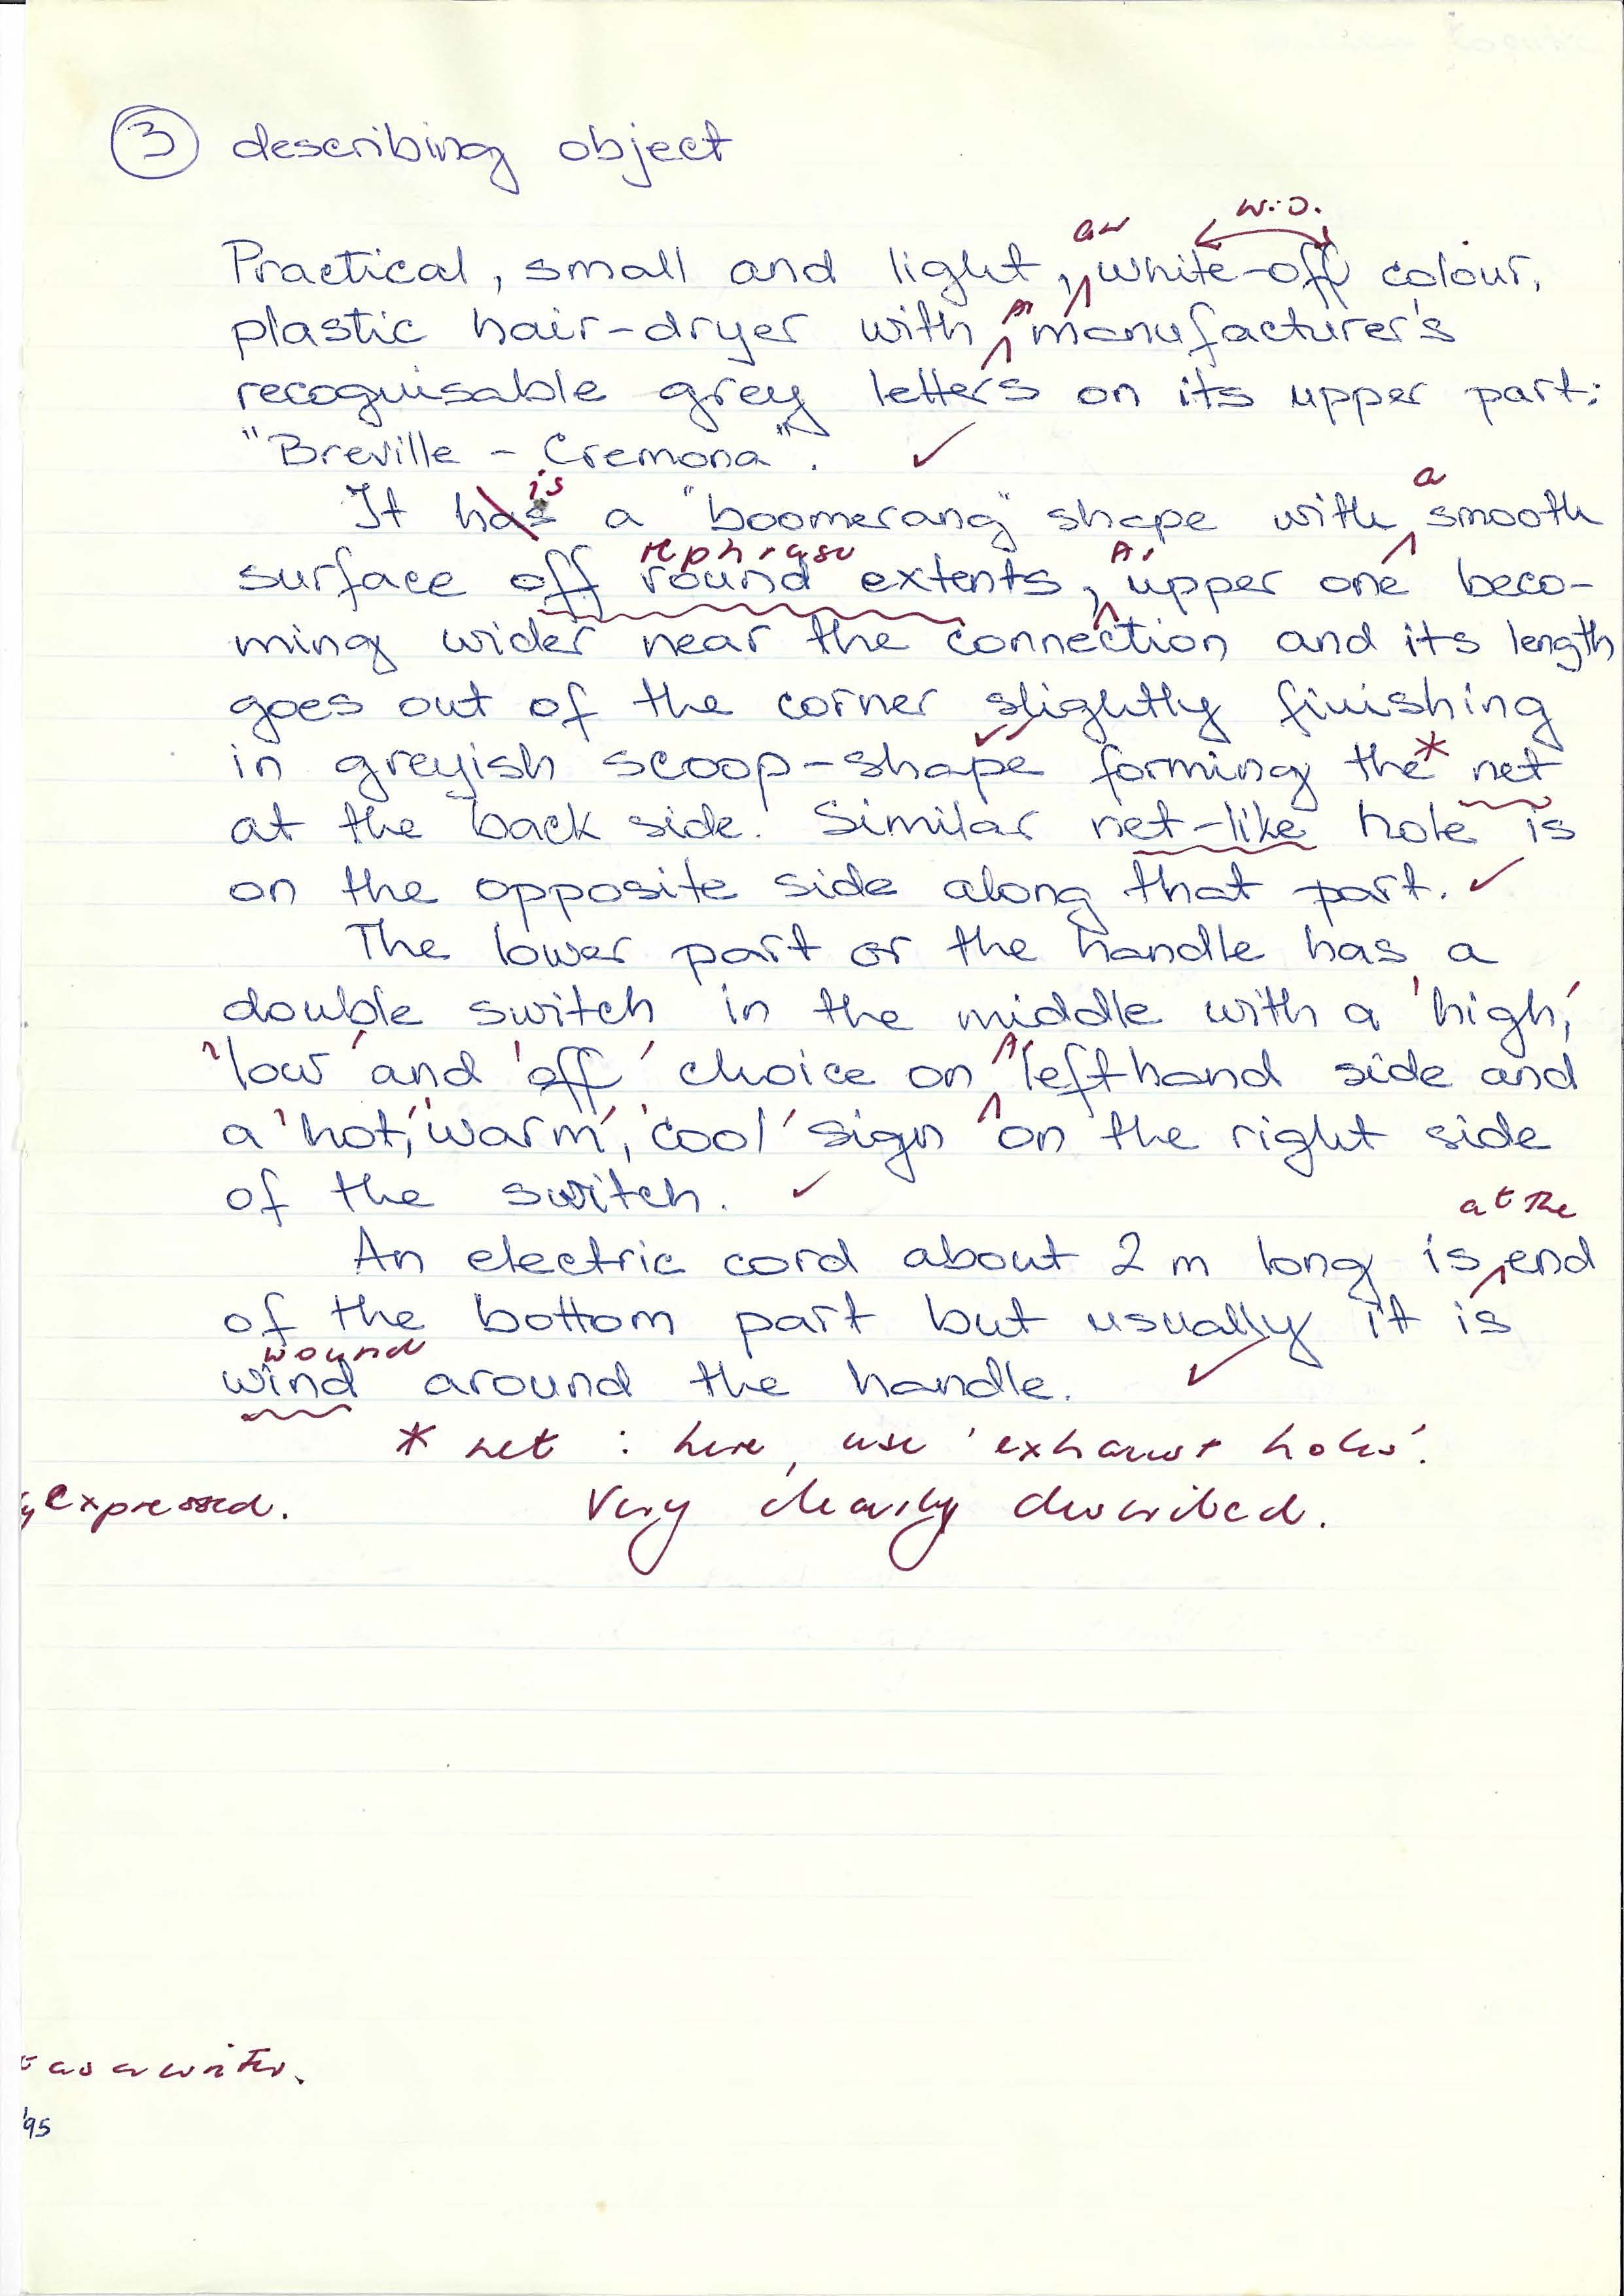 ③ describing object
an w.o.
Practical, small and light, white-off colour,
plastic hair-dryer with manufacturer's
recognisable grey letters on its upper part:
"Breville - Cremona". ✓
is a
It has a "boomerang" shape with smooth
rephrase
surface off round extents, upper one beco-
ming wider near the connection and its length
goes out of the corner slightly finishing
in greyish scoop-shape forming the * net
at the back side. Similar net-like hole is
on the opposite side along that part. ✓
The lower part or the handle has a
double switch in the middle with a 'high,'
'low' and 'off' choice on lefthand side and
a 'hot,' 'warm', 'cool' sign on the right side
of the switch. ✓
at the
An electric cord about 2 m long is end
of the bottom part but usually it is
wound
wind around the handle. ✓
* net : here, use 'exhaust holes'.
expressed. Very clearly described.
as a writer.
'95